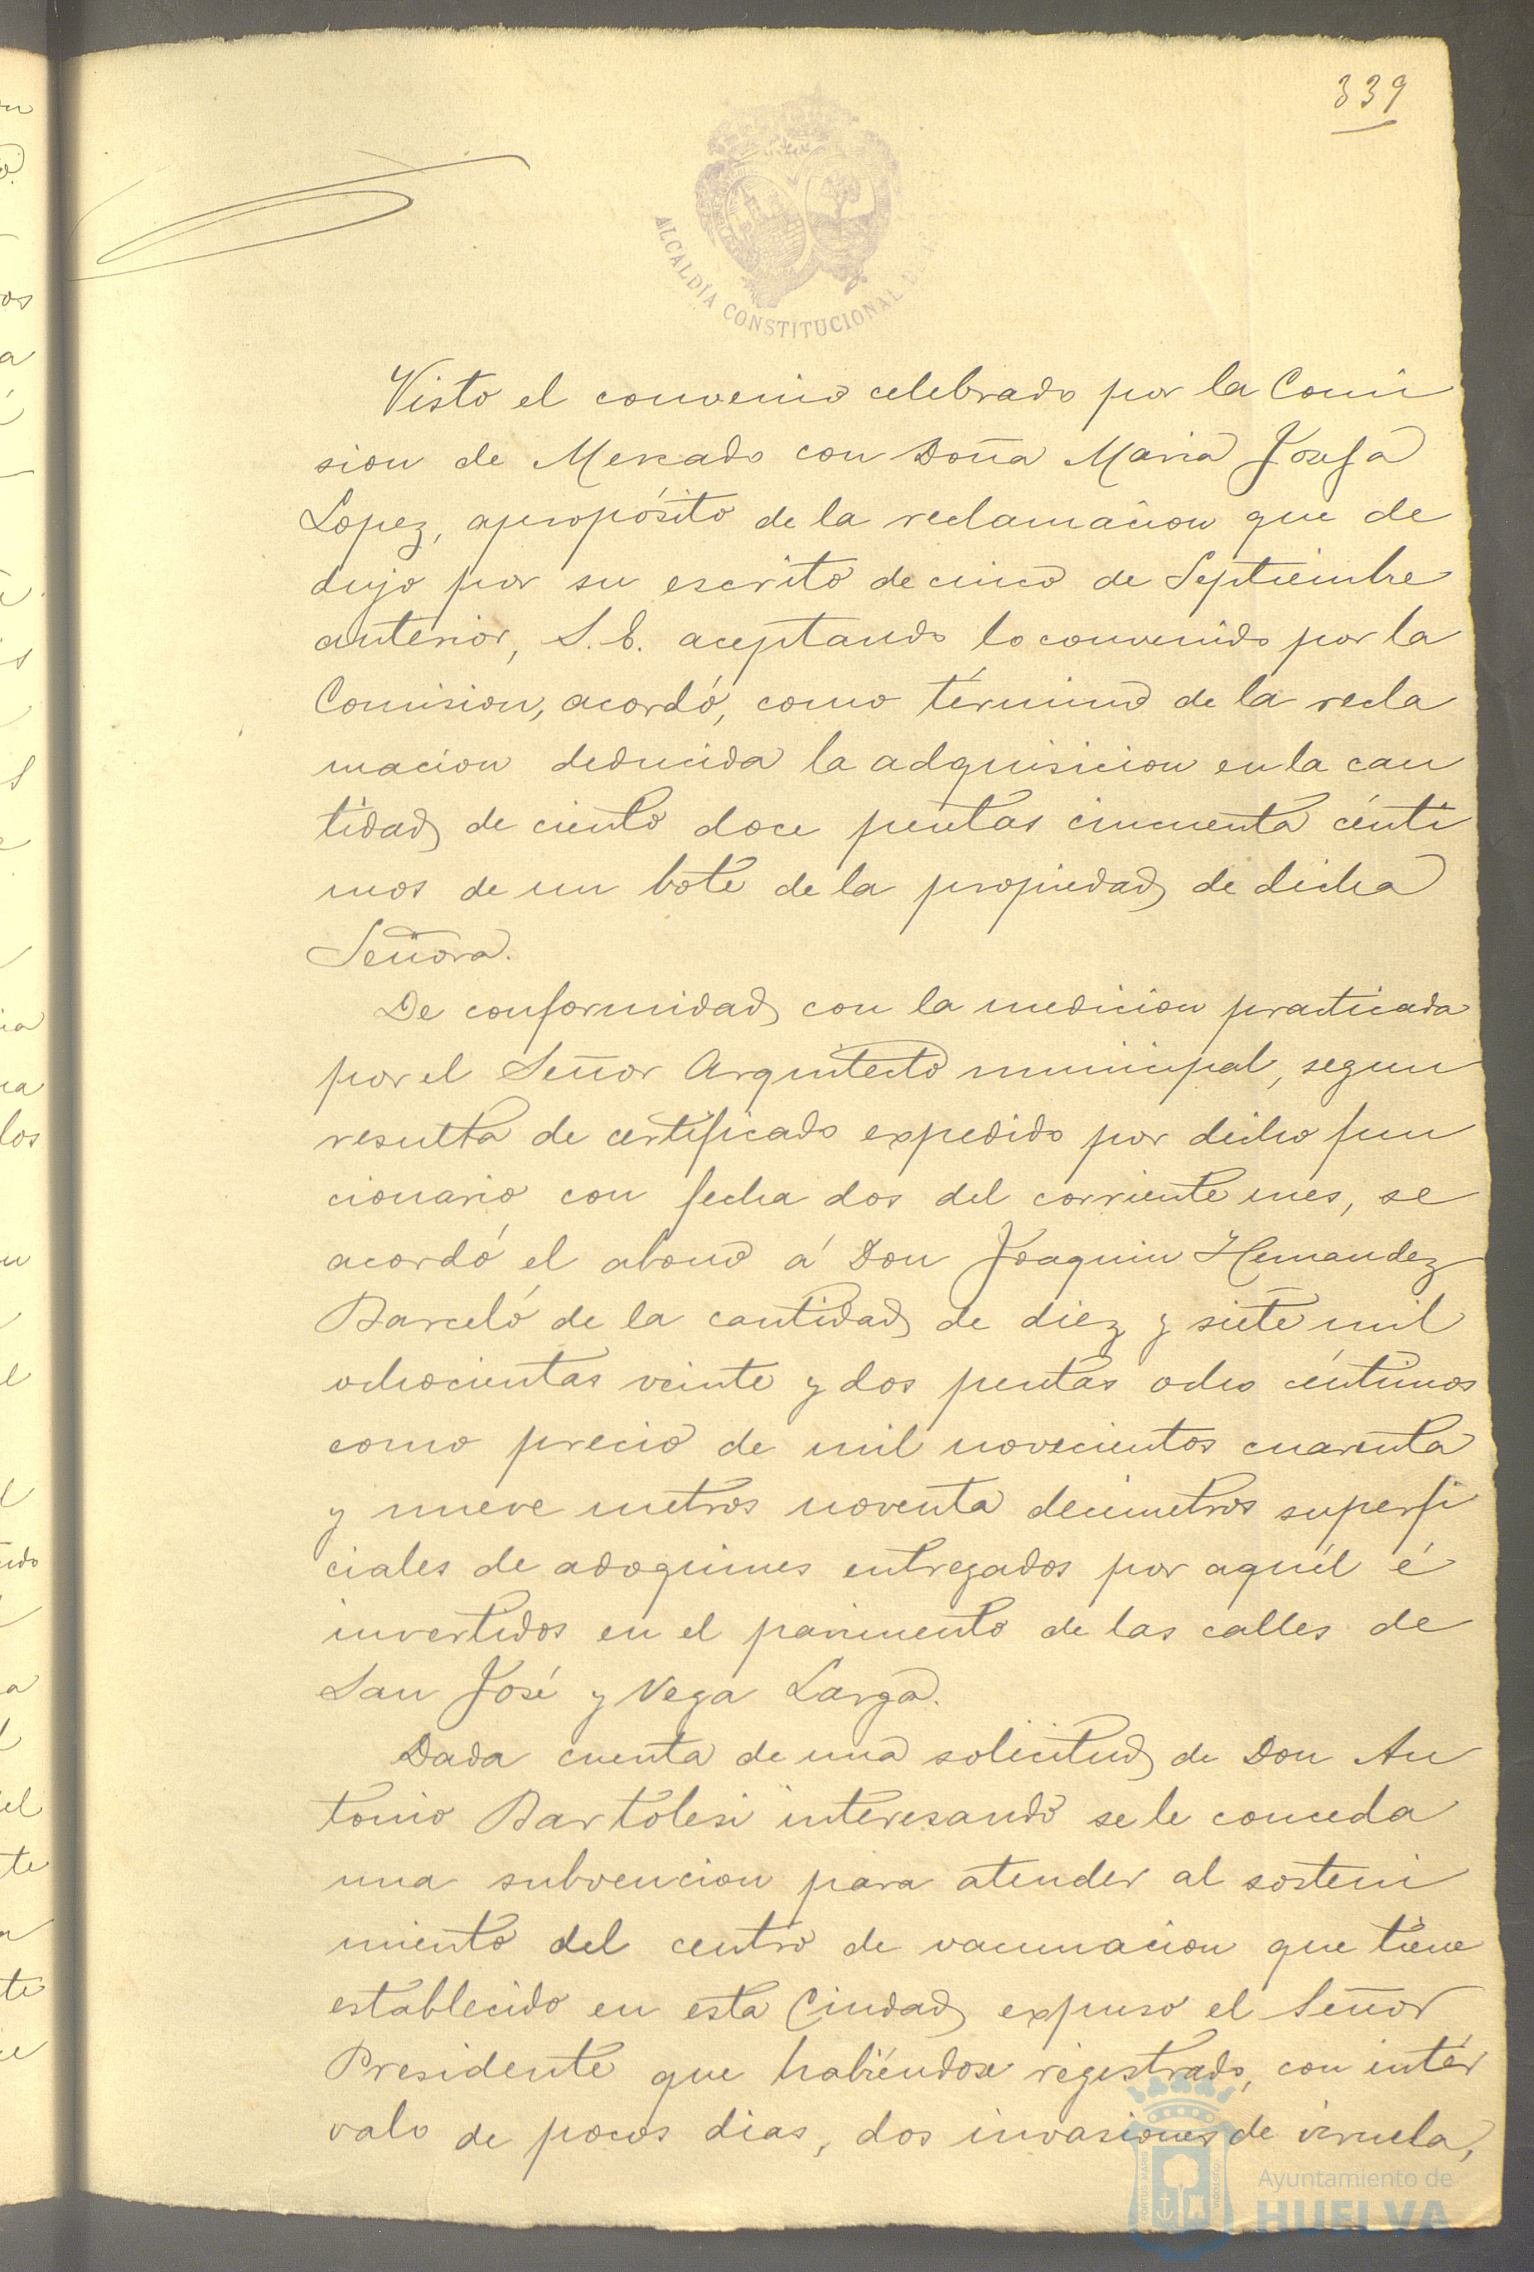 339
ALCALDÍA CONSTITUCIONAL
Visto el convenio celebrado por la Comi
sion de Mercado con Doña Maria Josefa
Lopez, apropósito de la reclamacion que de
dujo por su escrito de cinco de Septiembre
anterior, S. E. aceptando lo convenido por la
Comision, acordó, como término de la recla
macion deducida la adquisicion en la can
tidad de ciento doce pesetas cincuenta cénti
mos de un bote de la propiedad de dicha
Señora.
De conformidad con la medicion practicada
por el Señor Arquitecto municipal, segun
resulta de certificado expedido por dicho fun
cionario con fecha dos del corriente mes, se
acordó el abono á Don Joaquin Hernandez
Barceló de la cantidad de diez y siete mil
ochocientas veinte y dos pesetas ocho céntimos
como precio de mil novecientos cuarenta
y nueve metros noventa decimetros superfi
ciales de adoquines entregados por aquél é
invertidos en el pavimento de las calles de
San José y Vega Larga.
Dada cuenta de una solicitud de Don An
tonio Bartolesi interesando se le conceda
una subvencion para atender al sosteni
miento del centro de vacunacion que tiene
establecido en esta Ciudad expuso el Señor
Presidente que habiéndose registrado, con intér
valo de pocos dias, dos invasiones de viruela,
Ayuntamiento de
HUELVA